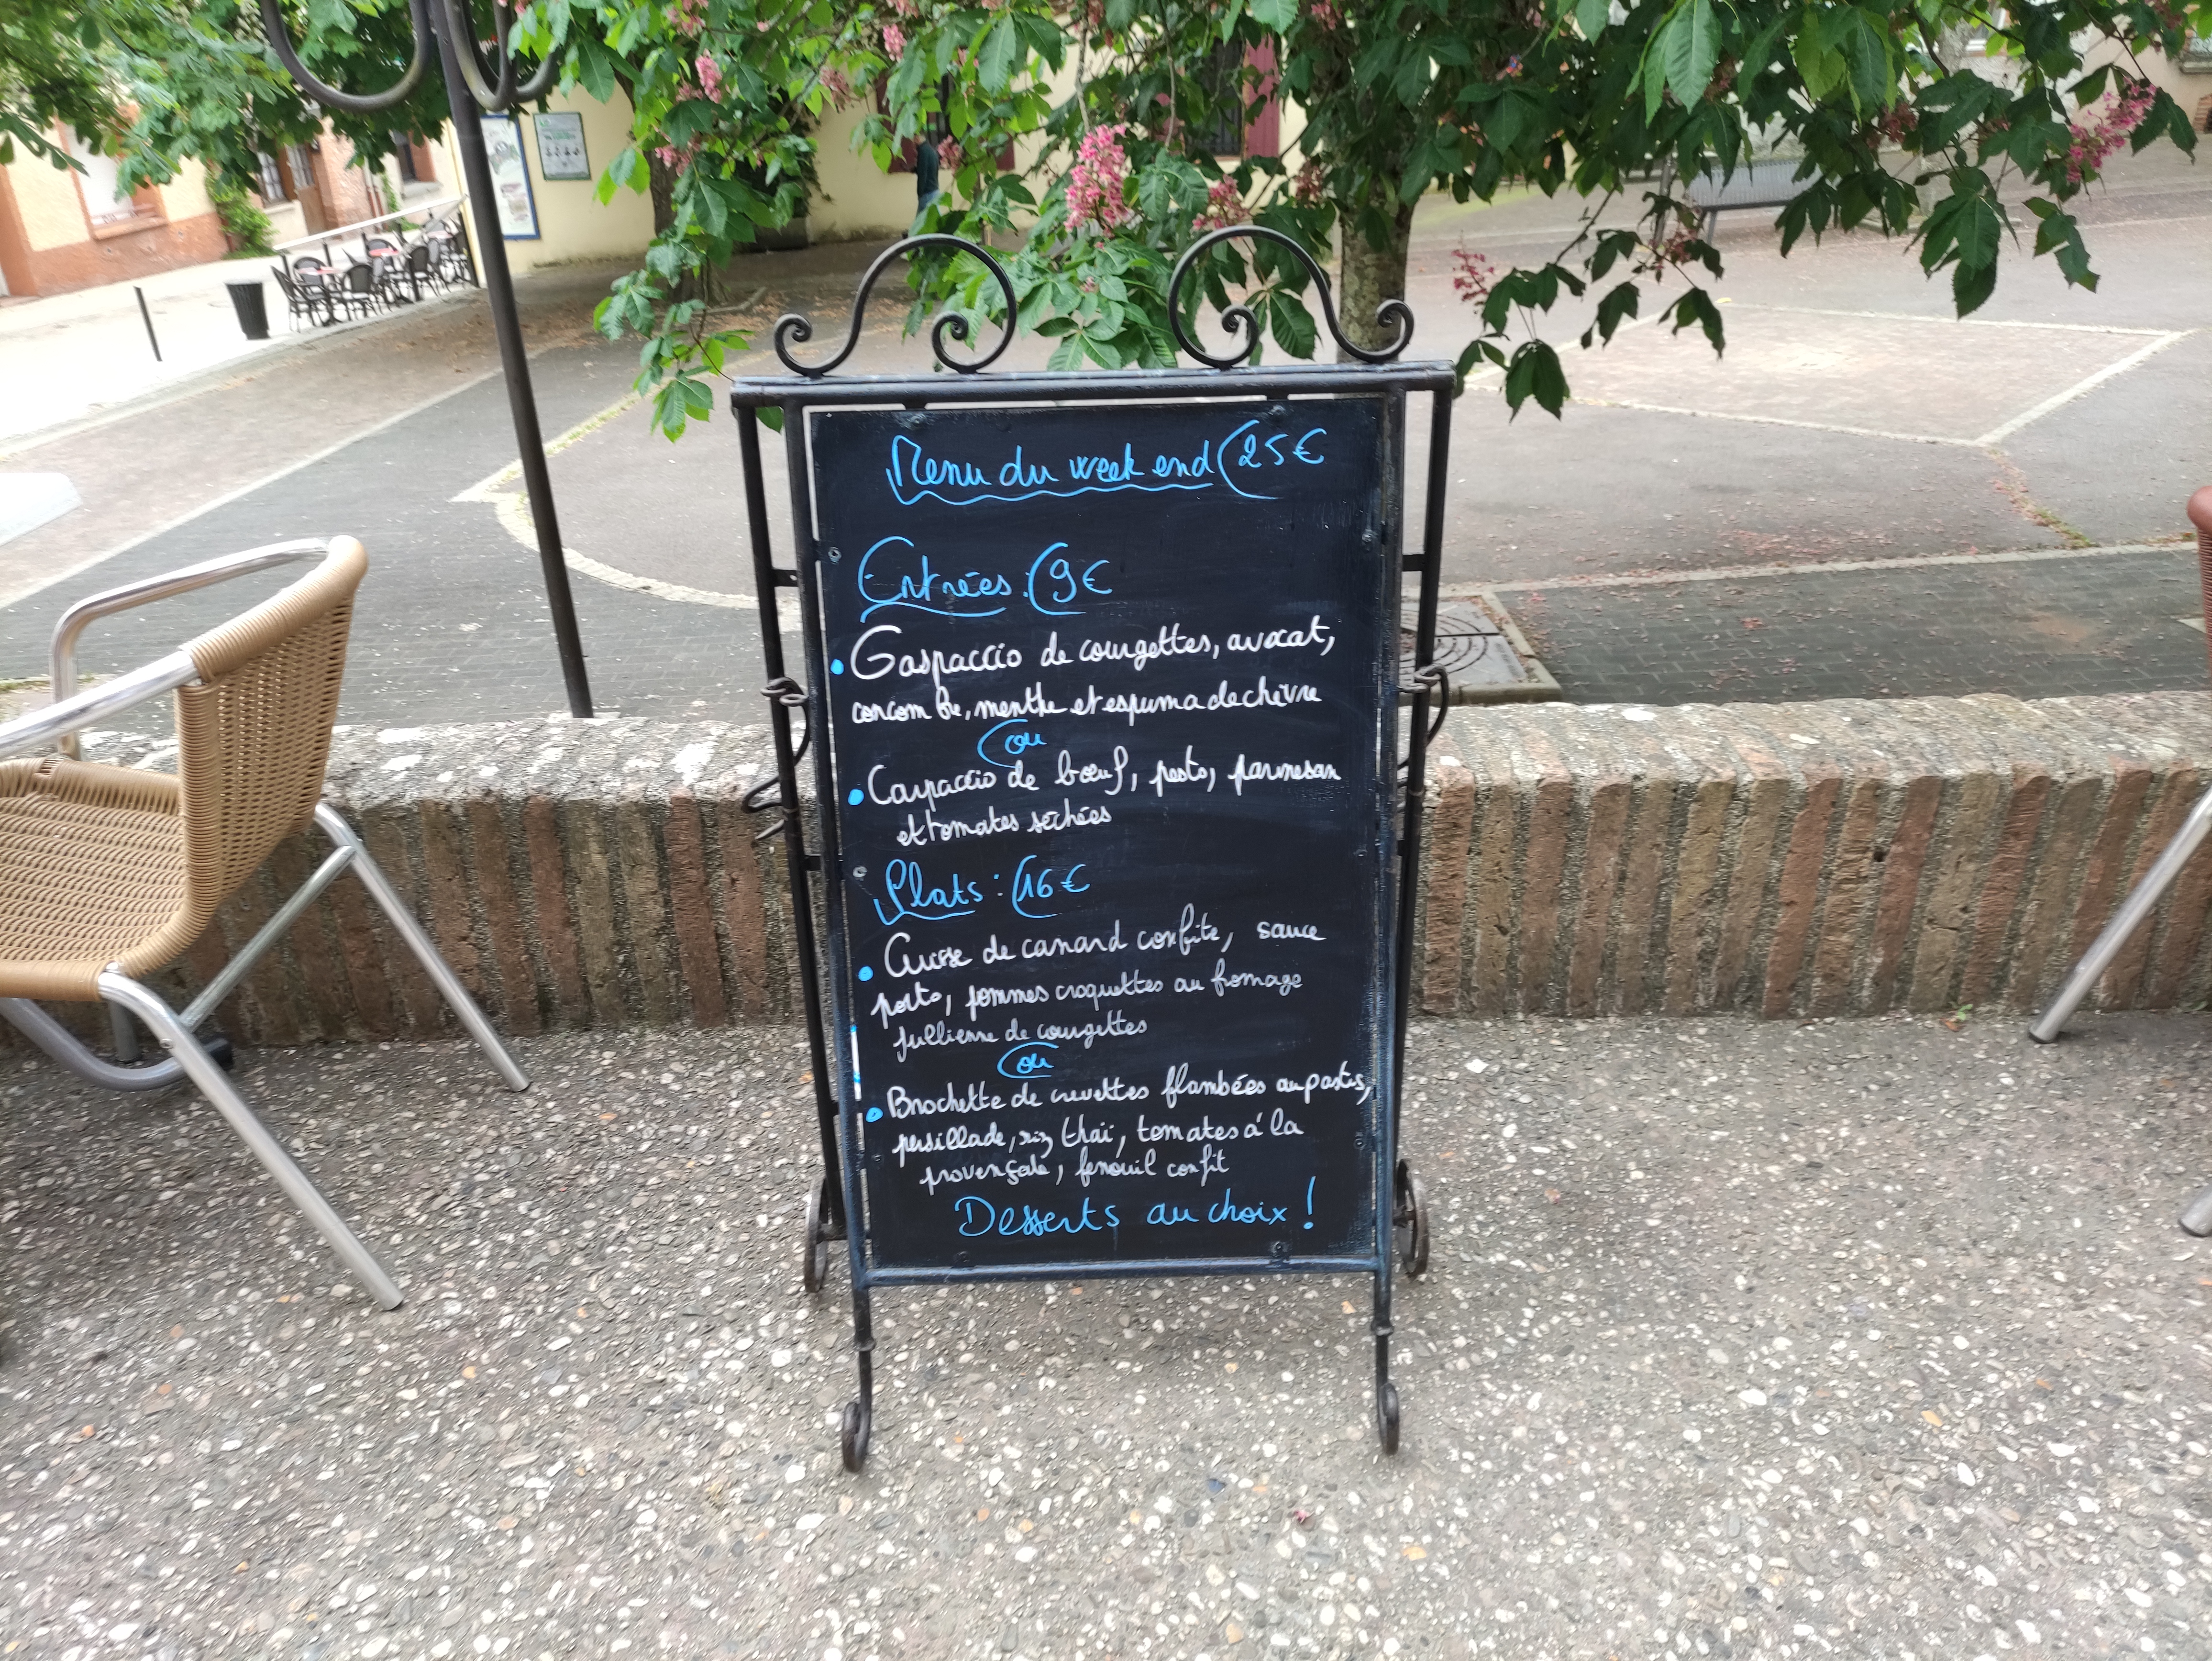 Menu du week end 25€
Entrées : 9€
• Gaspaccio de courgettes, avocat,
concombre, menthe et espuma de chèvre
ou
• Carpaccio de bœuf, pesto, parmesan
et tomates séchées
Plats : 16€
• Cuisse de canard confite, sauce
porto, pommes croquettes au fromage
jullienne de courgettes
ou
• Brochette de crevettes flambées au pastis,
persillade, riz thaï, tomates à la
provençale, fenouil confit
Desserts au choix !